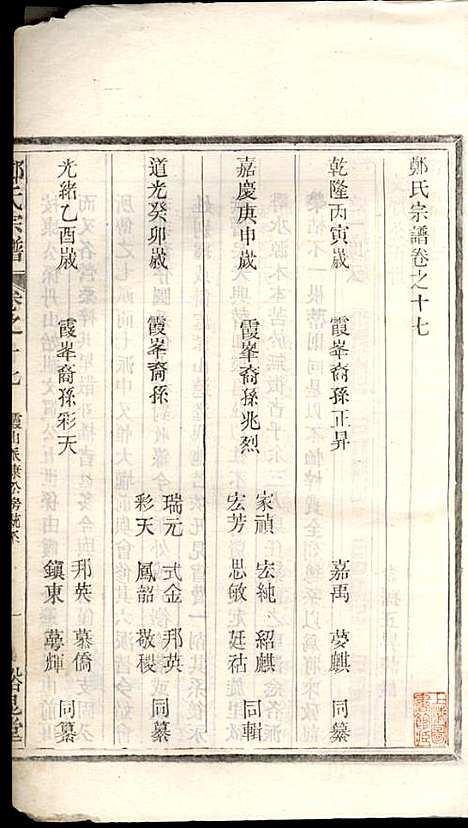 鄭氏宗譜卷之十七
乾隆丙寅歲 霞峯裔孫正昇 嘉禹 夢麒 同纂
嘉慶庚申歲 霞峯裔孫兆烈 家禎 宏純 紹麒
宏芳 思敏 廷祜 同輯
道光癸卯歲 霞峯裔孫 瑞元 式金 邦英
彩天 鳳韶 敬稷 同纂
光緒乙酉歲 霞峯裔孫彩天 邦英 慕僑
鎮東 夢輝 同纂
鄭氏宗譜 卷之十七 霞山派康公房統系 一